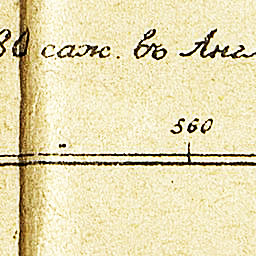 80 саж. въ Англ
560